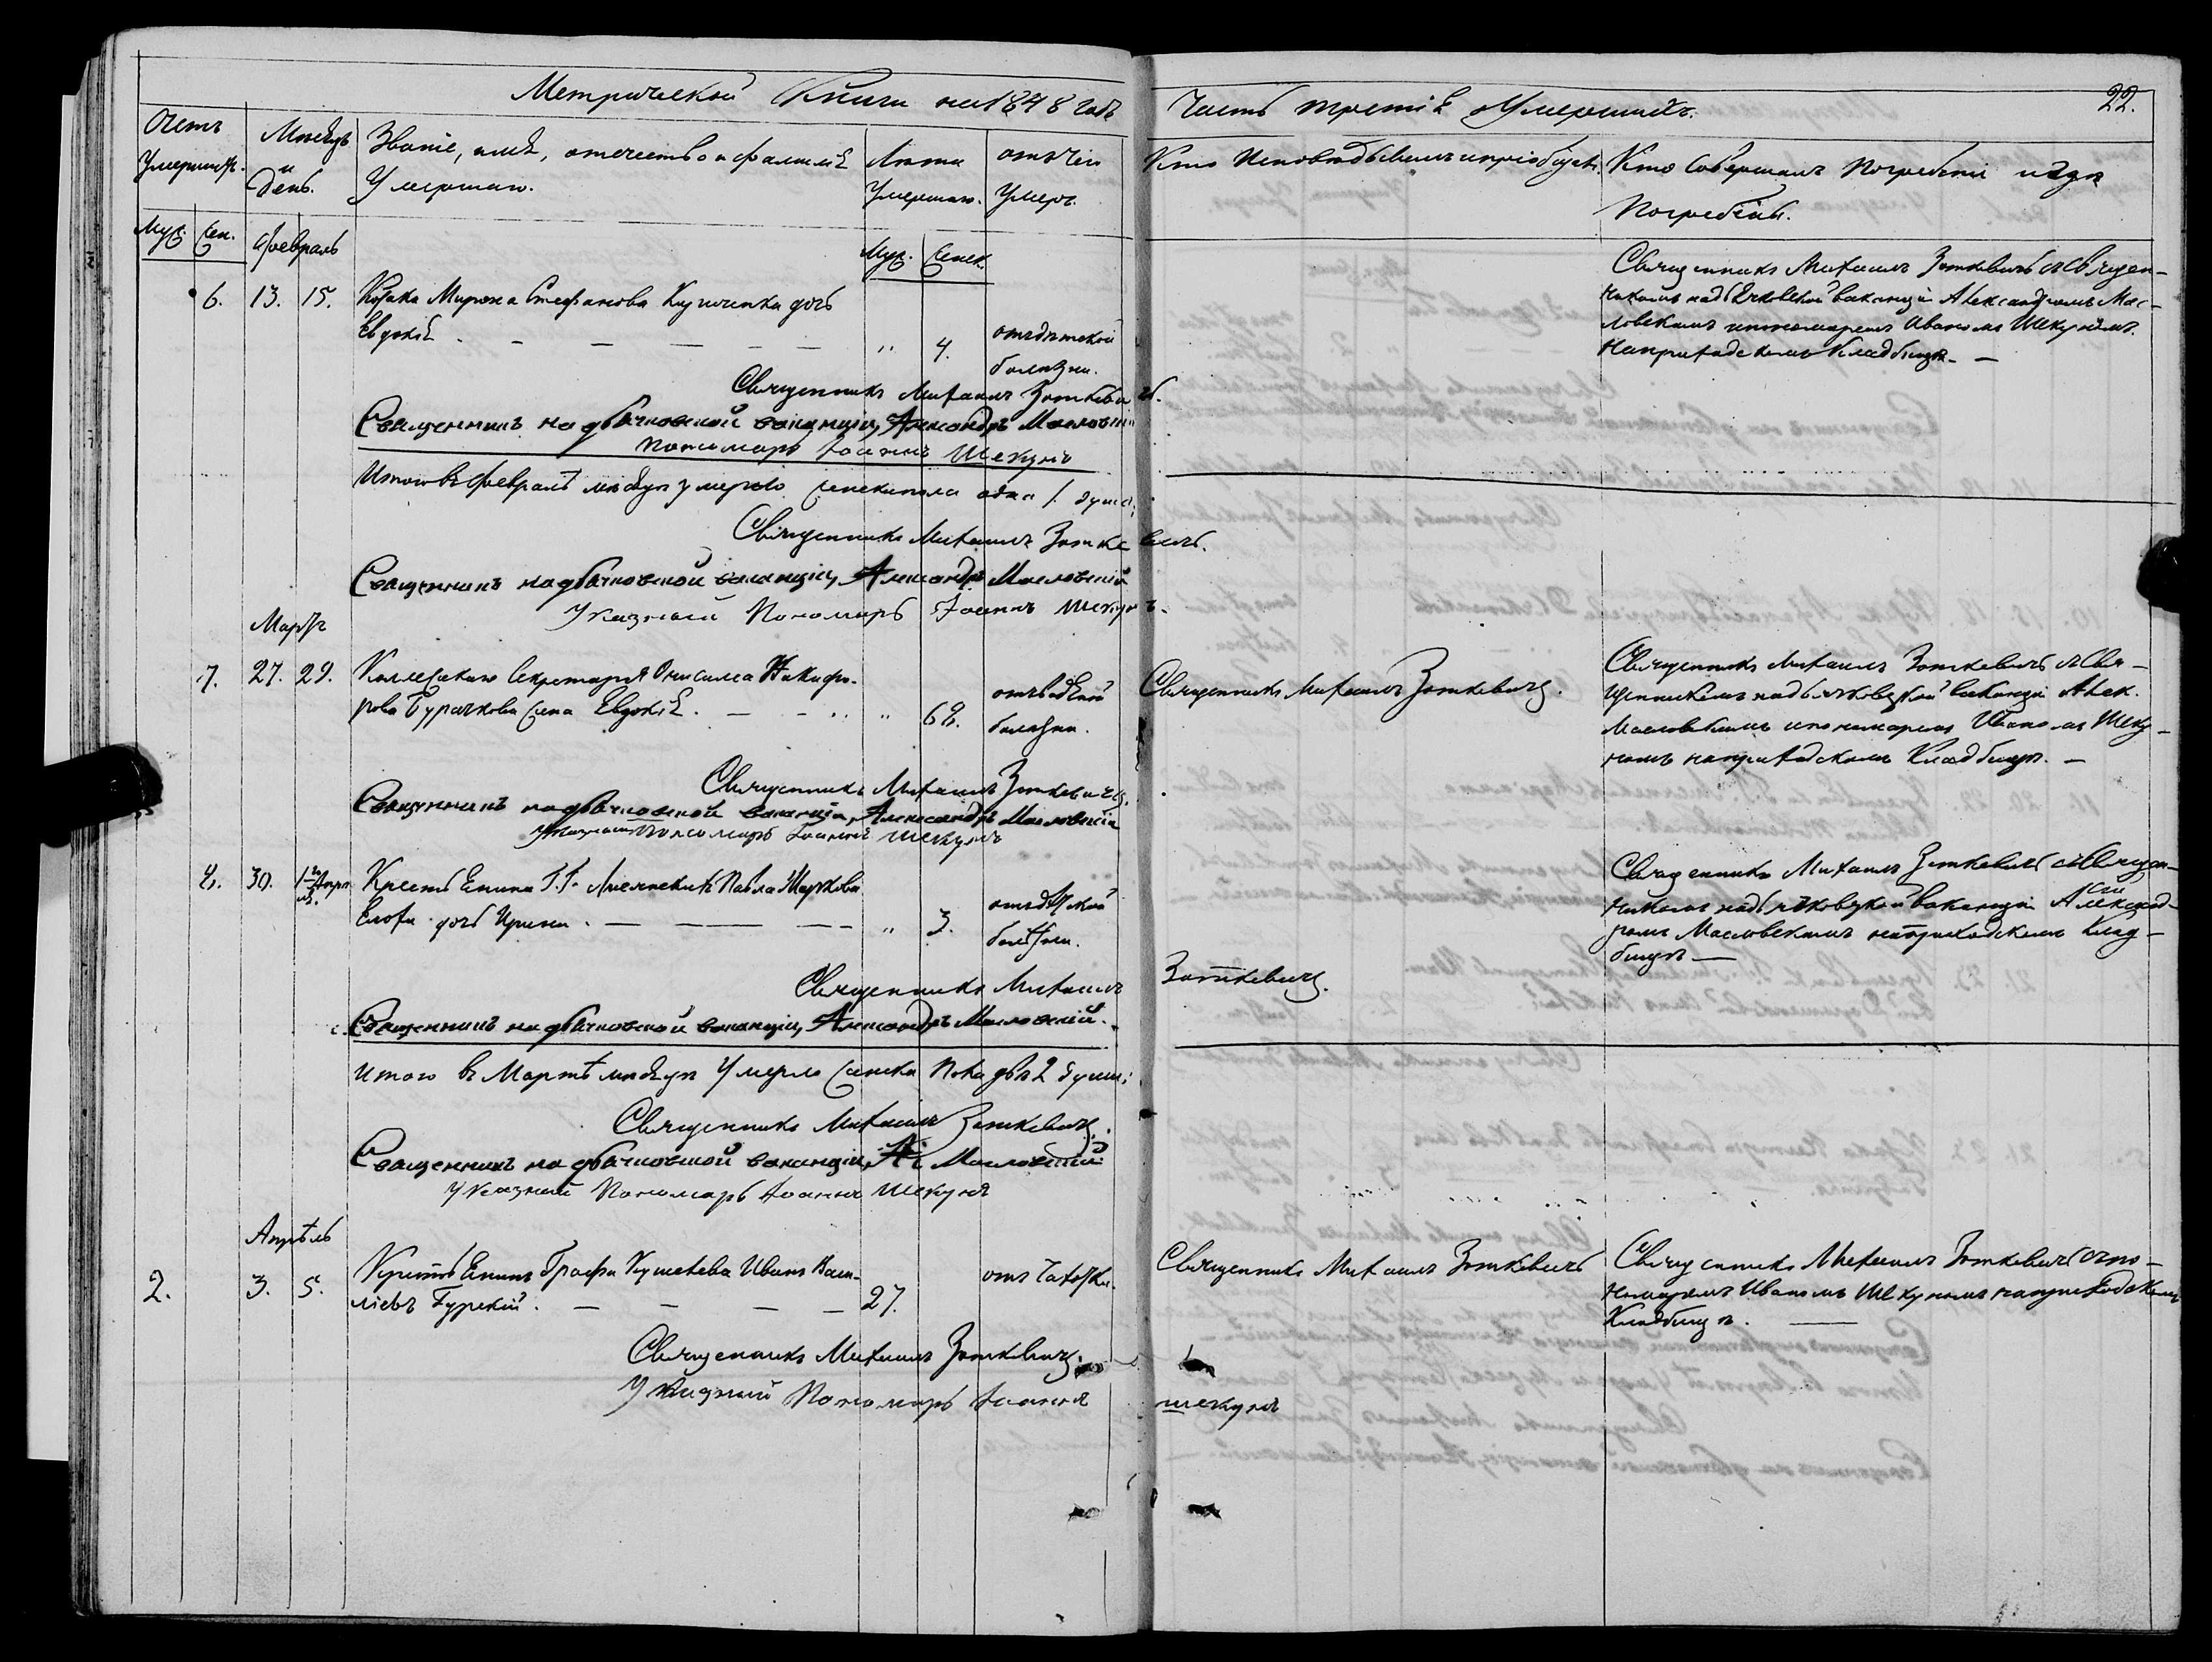 Метрической Книги на 1848 годъ
Часть третія Умершихъ.
22.
Счетъ Умершихъ.
Мѣсяцъ и день.
Званіе, имя, отечество и фамилія Умершаго.
Лѣта Умершаго.
отъ чего Умеръ.
Кто Исповѣдывалъ и пріобщалъ.
Кто Совершалъ Погребеніе и гдѣ
Погребены.
Муж. Жен.
Февраль
Муж. Женск.
6. 13. 15. Козака Мирона Стефанова дочь
Евдокія. — — — — — „ 4. отъ дѣтской
болѣзни.
Священникъ Михаилъ Зоткевичъ и Священ-
никомъ на дьячковской ваканціи Александромъ Мас-
ловскимъ и пономаремъ Иваномъ Шекуномъ.
На приходскомъ Кладбищѣ. —
Священникъ Михаилъ Зоткевичъ.
Священникъ на дьячковской ваканціи, Александръ Масловскій
Пономарь Іоаннъ Шекунъ
Итого въ февралѣ мѣсяцѣ умерло женска пола одна 1. душа;
Священникъ Михаилъ Зоткевичъ.
Священникъ на дьячковской ваканціи, Александръ Масловскій
Указный Пономарь Іоаннъ Шекунъ.
Мартъ
7. 27. 29. Коллежскаго Секретаря Онисима Никифо-
рова Бурачкова жена Евдокія. — — „ 68. отъ
болѣзни.
Священникъ Михаилъ Зоткевичъ.
Священникъ Михаилъ Зоткевичъ и Свя-
щенникомъ на дьячковской ваканціи Алек.
Масловскимъ и пономаремъ Иваномъ Шеку-
номъ на приходскомъ Кладбищѣ. —
Священникъ Михаилъ Зоткевичъ.
Священникъ на дьячковской ваканціи, Александръ Масловскій
Указный Пономарь Іоаннъ Шекунъ
8. 30. 1го Апрѣля. Крестьянина Г.Г. Павла Маркова
дочь Ирина. — — — „ 3. отъ дѣтской
болѣзни.
Священникъ Михаилъ Зоткевичъ съ Священ-
никомъ на дьячковской ваканціи Александ-
ромъ Масловскимъ на приходскомъ Клад-
бищѣ —
Священникъ Михаилъ Зоткевичъ.
Священникъ на дьячковской ваканціи, Александръ Масловскій.
Итого въ Мартѣ мѣсяцѣ Умерло женска пола двѣ 2 души;
Священникъ Михаилъ Зоткевичъ.
Священникъ на дьячковской ваканціи, Ал. Масловскій
Указный Пономарь Іоаннъ Шекунъ
Апрѣль
2. 3. 5. Крестьянинъ Графа Кушелева Иванъ Васи-
ліевъ Гурскій. — — — — 27. отъ Чахотки.
Священникъ Михаилъ Зоткевичъ
Священникъ Михаилъ Зоткевичъ съ по-
номаремъ Иваномъ Шекуномъ на приходскомъ
Кладбищѣ. —
Священникъ Михаилъ Зоткевичъ.
Указный Пономарь Іоаннъ Шекунъ